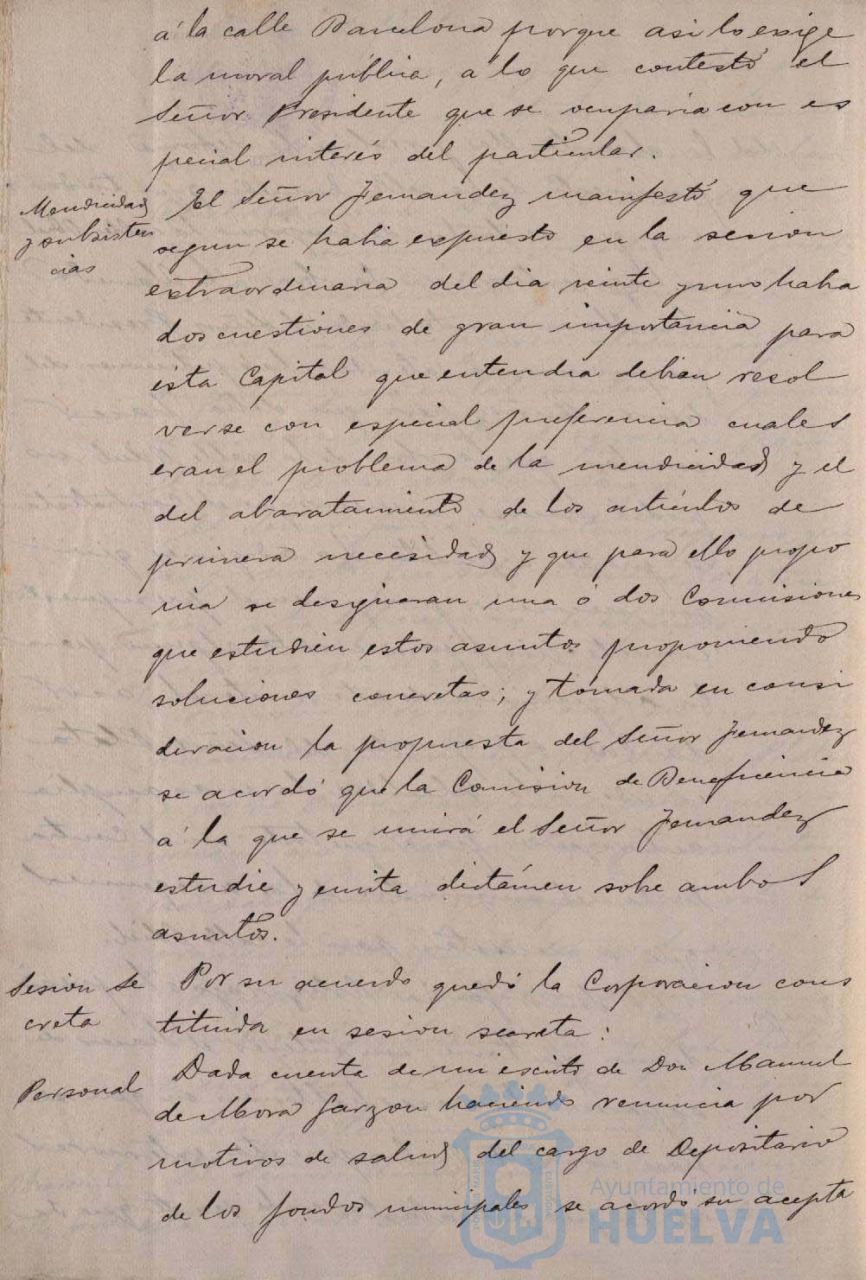 á la calle Barcelona porque asi lo exige
la moral pública, a lo que contestó el
Señor Presidente que se ocuparia con es
pecial interés del particular.
Mendicidad
y subsisten
cias
El Señor Fernandez manifestó que
segun se habia expuesto en la sesion
extraordinaria del dia veinte y uno habia
dos cuestiones de gran importancia para
ésta Capital que entendia debian resol
verse con especial preferencia cuales
eran el problema de la mendicidad y el
del abaratamiento de los artículos de
primera necesidad y que para ello propo
nia se designaran una ó dos Comisiones
que estudien estos asuntos proponiendo
soluciones concretas; y tomada en consi
deracion la propuesta del Señor Fernandez
se acordó que la Comision de Beneficencia
á la que se unirá el Señor Fernandez
estudie y emita dictámen sobre ambos
asuntos.
Sesion se
creta
Por su acuerdo quedó la Corporacion cons
tituida en sesion secreta:
Personal
Dada cuenta de un escrito de Don Manuel
de Mora Garzon haciendo renuncia por
motivos de salud del cargo de Depositario
de los fondos municipales se acordó su acepta
Ayuntamiento de
HUELVA